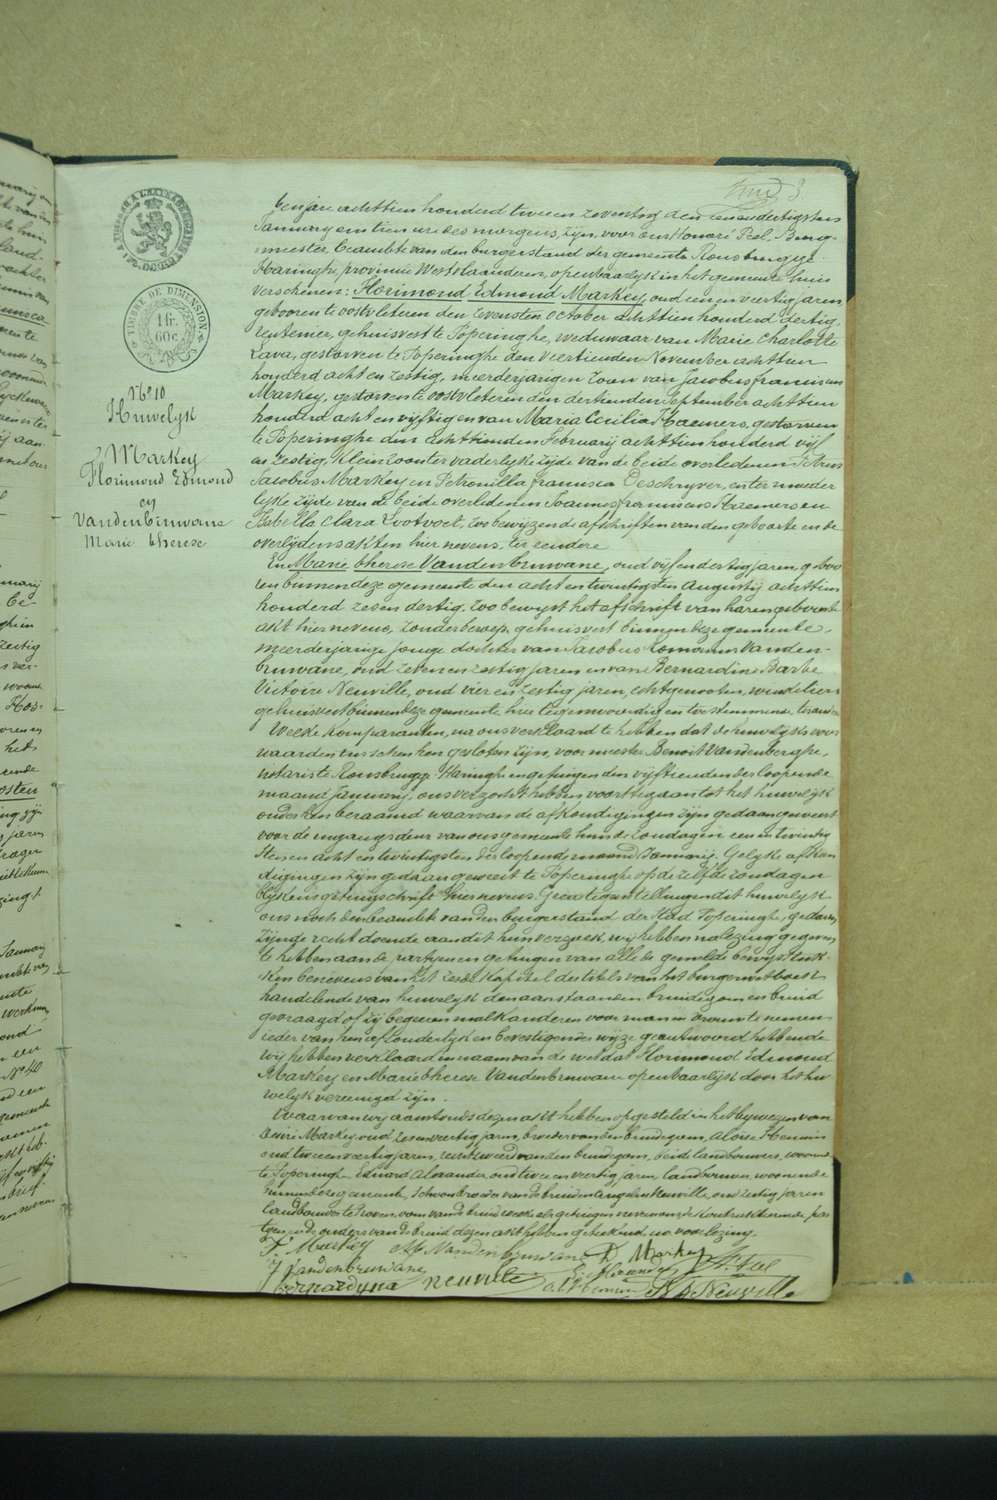 3
TIMBRE DE DIMENSION
1 fr.
60 c.
N° 10
Huwelyk
Markey
Florimond Edmond
en
Vandenbruwane
Marie Therese
Tenjare achttien honderd twee en zeventig den een en dertigsten
January om tien ure des morgens, zyn voor ons Honoré Peel, Burg-
meester, beambte van den burgerstand der gemeente Rousbrugge
Haringhe, provincie Westvlaanderen, openbaarlyk in het gemeente huis
verschenen: Florimond Edmond Markey, oud een en veertig jaren
geboren te oostvleteren den zevensten October achttien honderd dertig,
rentenier, gehuisvest te Poperinghe, weduwaar van Marie Charlotte
Lava, gestorven te Poperinghe den veertienden November achttien
honderd acht en zestig, meerderjarigen zoon van Jacobus franciscus
Markey, gestorven te oostvleteren den dertienden September achttien
honderd acht en vyftig en van Maria Cecilia Haemers, gestorven
te Poperinghe den achttienden February achttien honderd vyf
en zestig, kleinzoon ter vaderlyke zyde van de beide overledenen Petrus
Jacobus Markey en Petronilla francisca Deschryver, en ter moeder
lyke zyde van de beide overledenen Joannes franciscus Haemers en
Isabella Clara Lootvoet, zoo bewyzen de afschriften van den geboorte en de
overlydens akten hier nevens, ter eendere
En Marie Therese Vandenbruwane, oud vyf en dertig jaren gebo
ren binnen deze gemeente den acht en twintigsten Augusty achttien
honderd zes en dertig, zoo bewyst het afschrift van haren geboorte
akt hier nevens, zonder beroep, gehuisvest binnen deze gemeente,
meerderjarige jonge dochter van Jacobus Vanden-
bruwane, oud zeven en zestig jaren en van Bernardine Barbe
Victoire Neuville, oud vier en zestig jaren, echtgenooten,
gehuisvest binnen deze gemeente, hier tegenwoordig en toestemmende, ter andere
Welke komparanten, na ons verklaard te hebben dat de huwelyks voor
waarden tusschen hen gesloten zyn, voor meester Benoit Vandenberghe,
notaris te Rousbrugge-Haringhe en gefingen den vyftienden der loopende
maand January, ons verzocht hebben voort te gaan tot het huwelyk
onder hen beraamd waarvan de afkondigingen zyn gedaan geweest
voor de ingangsdeur van ons gemeente huis de zondagen een en twintig
sten en acht en twintigsten der loopende maand January. Gelyke afkon
digingen zyn gedaan geweest te Poperinghe op de zelfde zondagen
blykens getuigschrift hier nevens. Geen tegenstellingen dit huwelyk
ons noch den beambte van den burgerstand der stad Poperinghe, gedaan
zynde recht doende aan dit hun verzoek, wy hebben na lezing gegeven
te hebben aan de partyen en getuigen van alle de gemelde bewysstuk
ken benevens van het zesde kapittel des titels van het burger wetboek
handelende van huwelyk den aanstaanden bruidegom en bruid
gevraagd of zy begeeren malkanderen voor man en vrouw te nemen
ieder van hen afzonderlyk en bevestigender wyze geantwoord hebbende
wy hebben verklaard in naam van de wet dat Florimond Edmond
Markey en Marie Therese Vandenbruwane openbaarlyk door het hu
welyk vereenigd zyn.
Waarvan wy aanstonds dezen akt hebben opgesteld in het bywezen van
Markey, oud zes en veertig jaren, broeder van den bruidegom, Aloise Hennin
oud twee en veertig jaren, van den bruidegom, beide landbouwers, woonende
te Poperinghe Eduard Alexander, oud twee en veertig jaren landbouwer, woonende
binnen deze gemeente, schoonbroeder van de bruid en Neuville, oud zestig jaren
landbouwer te oom van de bruid welke als getuigen nevens ons
en de ouders van de bruid dezen akt hebben geteekend, na voorlezing.
F. Markey Vandenbruwane D Markey
J Vandenbruwane
Bernardyna neuville Neuville